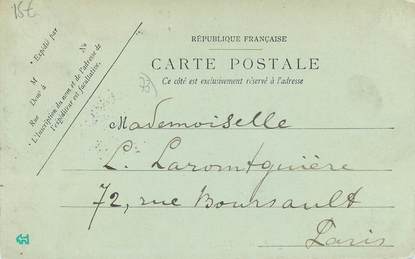 15€
RÉPUBLIQUE FRANÇAISE
CARTE POSTALE
Ce côté est exclusivement réservé à l'adresse
Nº
Expédié par
M
Demt à
Rue
L'inscription du nom et de l'adresse de
l'expéditeur est facultative.
(73)
Mademoiselle
L. Laromiguière
72, rue Boursault
Paris